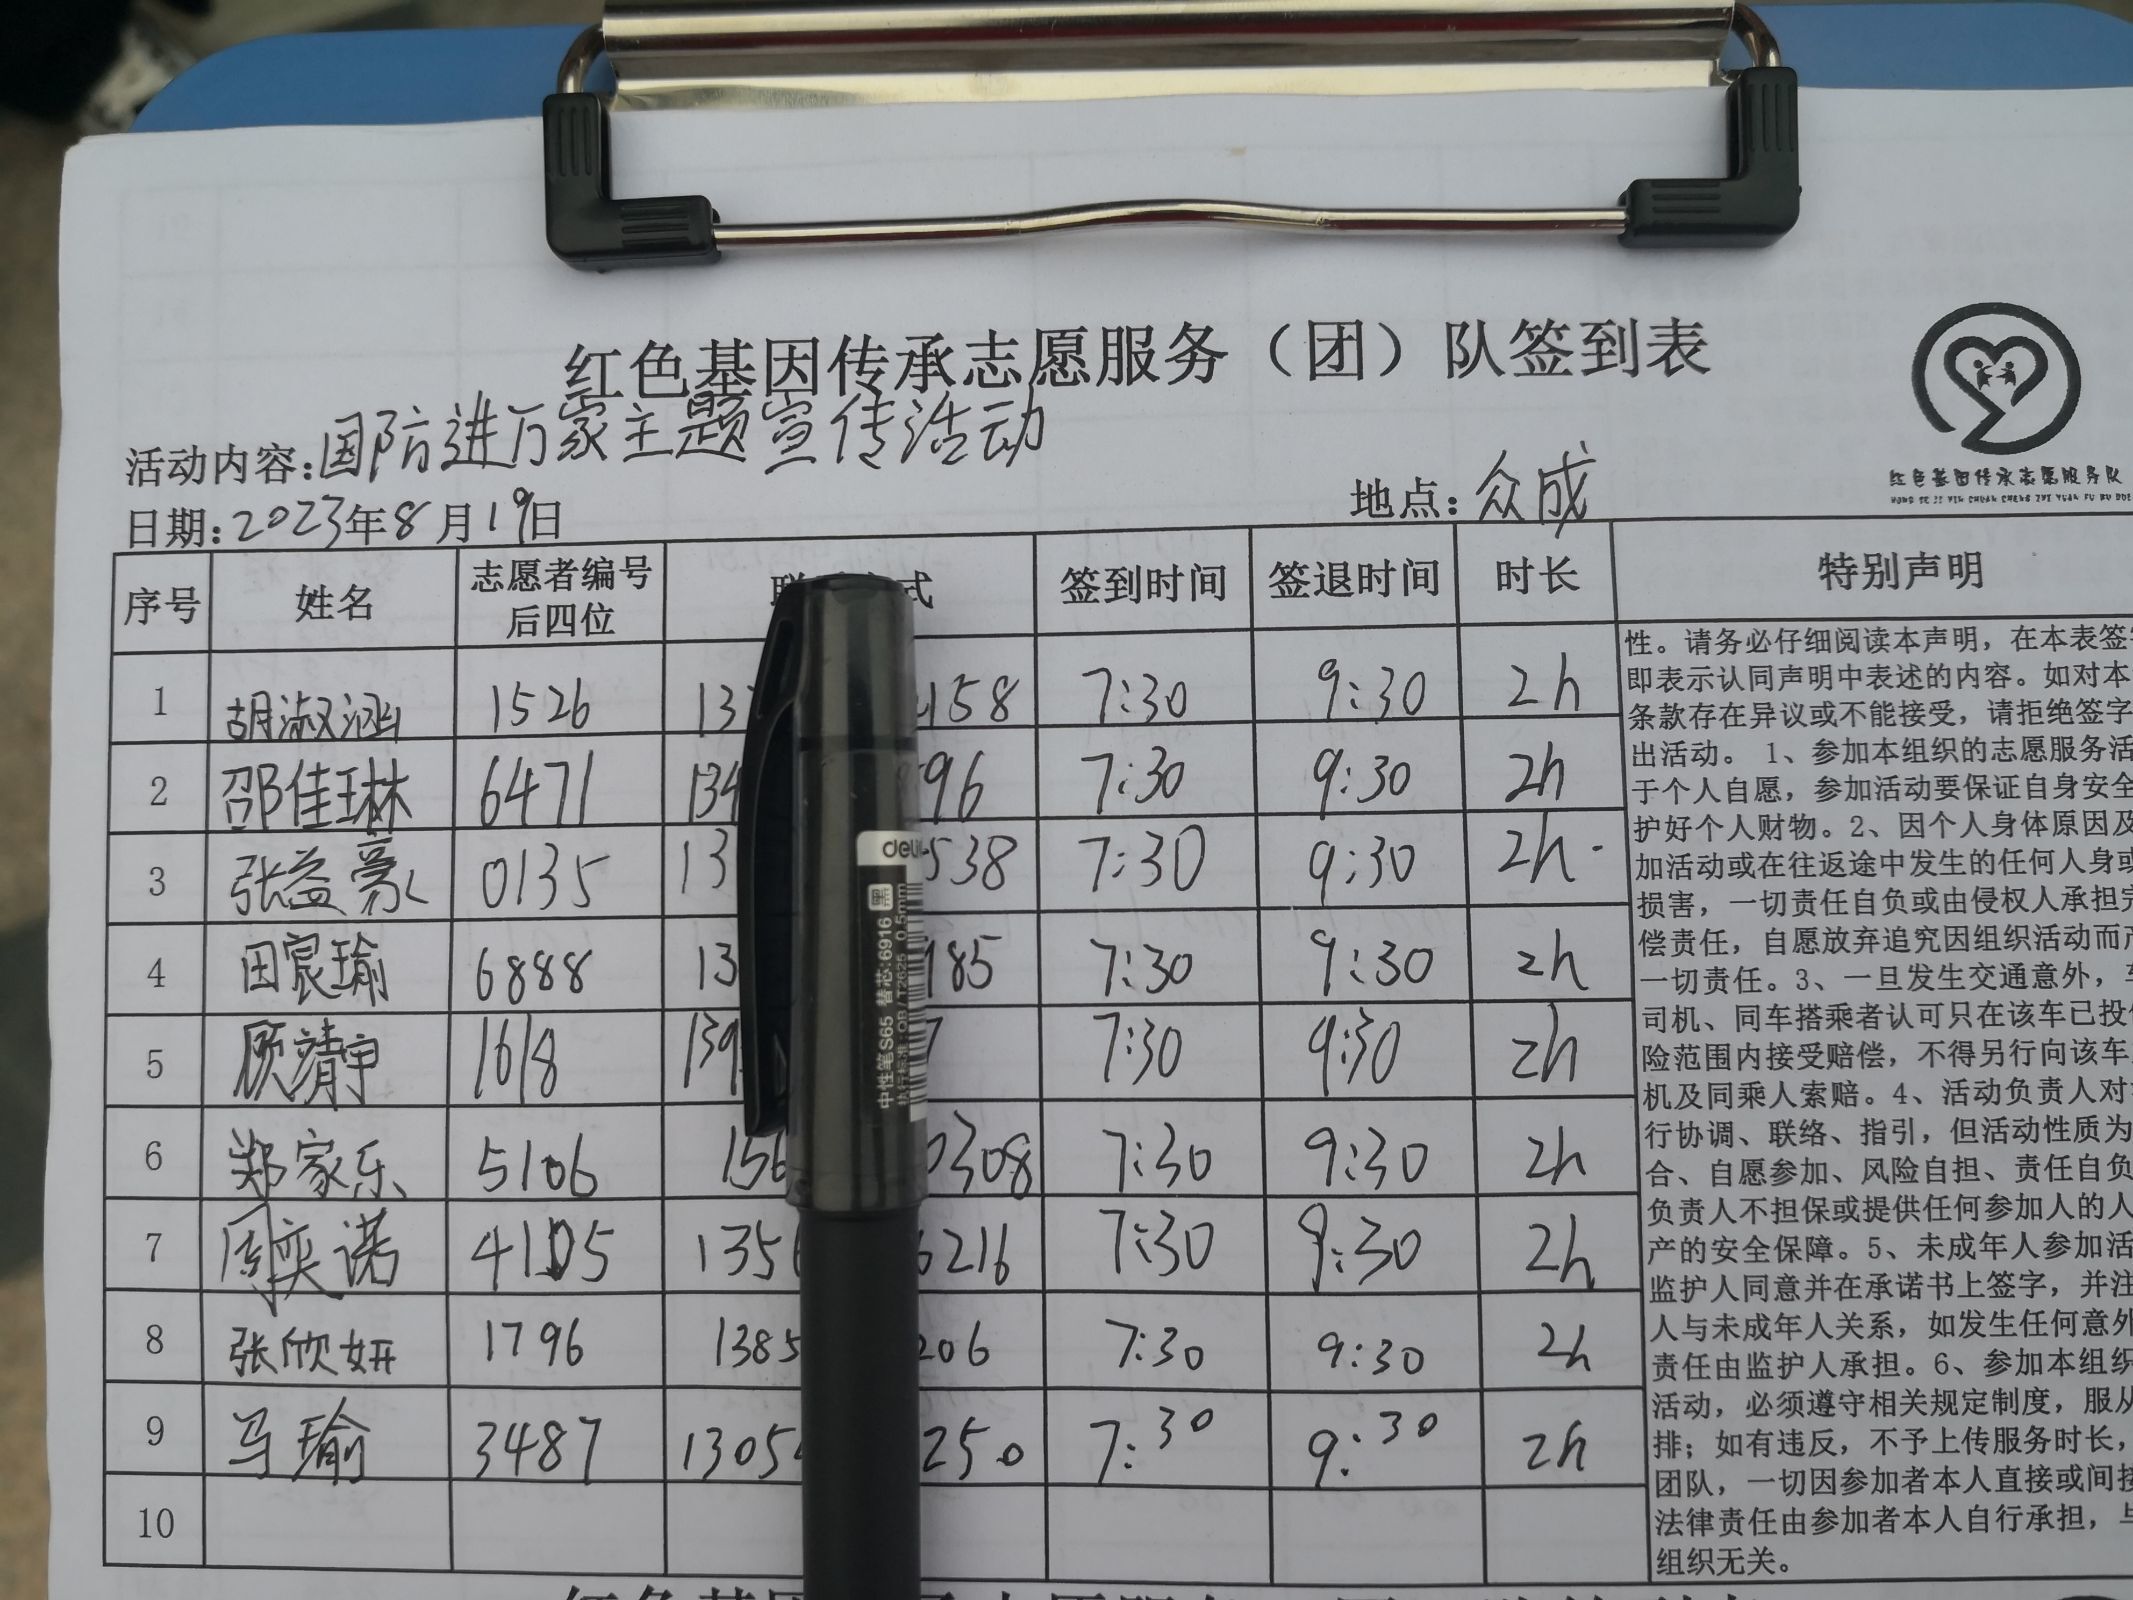 红色基因传承志愿服务（团）队签到表
红色基因传承志愿服务队
HONG SE JI YIN CHUAN CHENG ZHI YUAN FU WU DUI
活动内容：国防进万家主题宣传活动
日期：2023年8月19日 地点：众成
序号 姓名 志愿者编号后四位 联 式 签到时间 签退时间 时长 特别声明
1 胡淑涵 1526 13 158 7:30 9:30 2h
2 邵佳琳 6471 134 96 7:30 9:30 2h
3 张益豪 0135 13 538 7:30 9:30 2h
4 田宸瑜 6888 13 185 7:30 9:30 2h
5 顾靖宇 1618 139 7 7:30 9:30 2h
6 郑家乐 5106 156 0308 7:30 9:30 2h
7 周奕诺 4105 135 6216 7:30 9:30 2h
8 张欣妍 1796 1385 206 7:30 9:30 2h
9 马瑜 3487 1305 250 7:30 9:30 2h
10
性。请务必仔细阅读本声明，在本表签
即表示认同声明中表述的内容。如对本
条款存在异议或不能接受，请拒绝签字
出活动。 1、参加本组织的志愿服务活
于个人自愿，参加活动要保证自身安全
护好个人财物。2、因个人身体原因及
加活动或在往返途中发生的任何人身或
损害，一切责任自负或由侵权人承担
偿责任，自愿放弃追究因组织活动而
一切责任。3、一旦发生交通意外，
司机、同车搭乘者认可只在该车已投
险范围内接受赔偿，不得另行向该车
机及同乘人索赔。4、活动负责人对
行协调、联络、指引，但活动性质为
合、自愿参加、风险自担、责任自负
负责人不担保或提供任何参加人的人
产的安全保障。5、未成年人参加活
监护人同意并在承诺书上签字，并注
人与未成年人关系，如发生任何意外
责任由监护人承担。6、参加本组织
活动，必须遵守相关规定制度，服从
排；如有违反，不予上传服务时长，
团队，一切因参加者本人直接或间接
法律责任由参加者本人自行承担，与
组织无关。
deli
黑
中性笔S65 替芯:6916
执行标准:QB/T2625 0.5mm